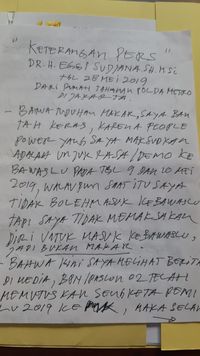 " KETERANGAN PERS "
DR. H. EGGI SUDJANA SH. MSi
TGL 28 MEI 2019
DARI RUMAH TAHANAN POLDA METRO
DI JAKARTA.
- BAHWA TUDUHAN MAKAR, SAYA BAN
TAH KERAS, KARENA PEOPLE
POWER YANG SAYA MAKSUDKAN
ADALAH UNJUK RASA/DEMO KE
BAWASLU PADA TGL 9 DAN 10 MEI
2019, WALAUPUN SAAT ITU SAYA
TIDAK BOLEH MASUK KE BAWASLU
TAPI SAYA TIDAK MEMAKSAKAN
DIRI UNTUK MASUK KE BAWASLU,
JADI BUKAN MAKAR.
- BAHWA KINI SAYA MELIHAT BERITA
DI MEDIA, BPN/PASLON 02 TELAH
MEMUTUSKAN SENGKETA PEMI
LU 2019 KE MK, MAKA SELAN